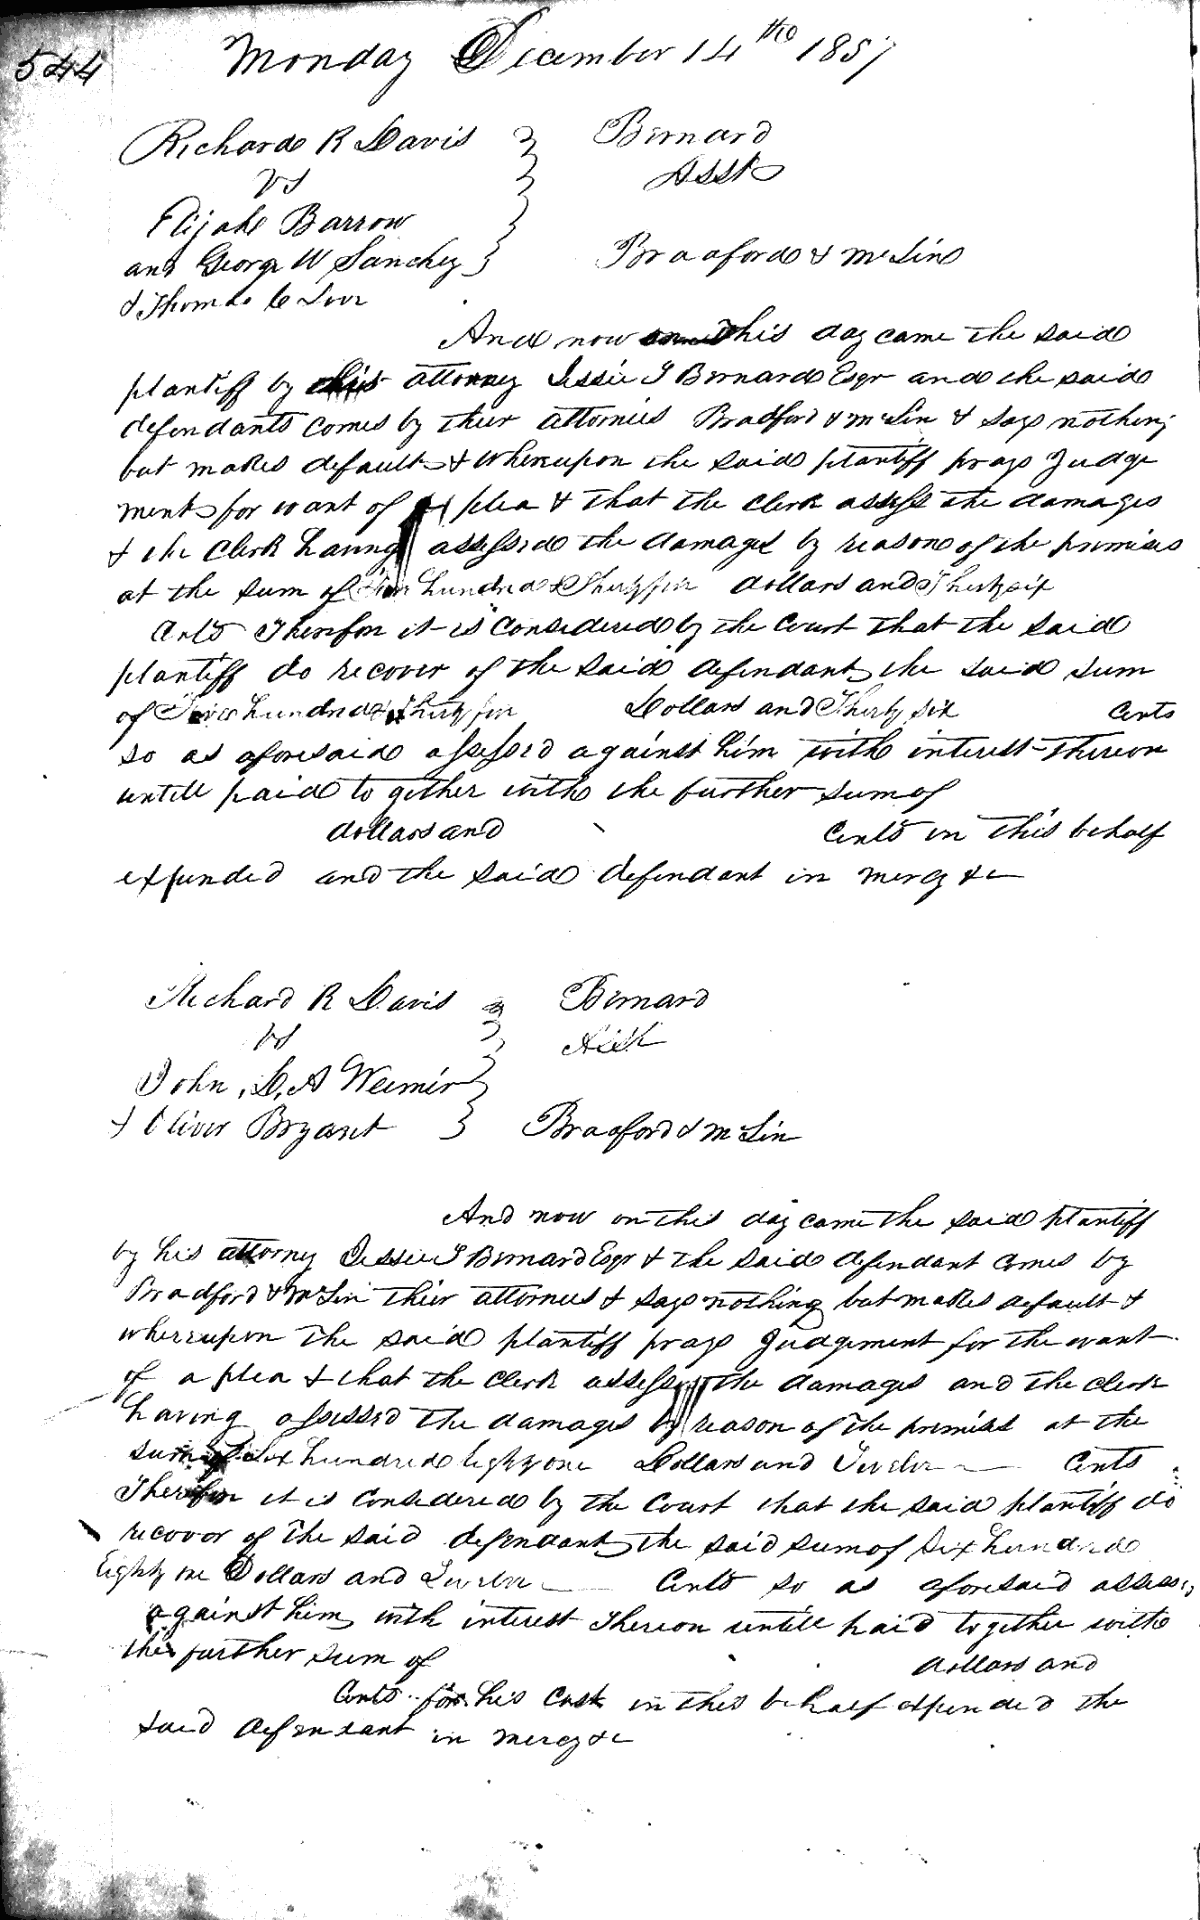 544
Monday December 14th 1857
Richard R Davis
Bernard
vs
Asst
Elijah Barrow
and George W Sanchez
Bradford & McLin
& Thomas C Love
And now this day came the said
plantiff by his attorney Jessie J Bernard Esqr and the said
defendants comes by their attornies Bradford & McLin & says nothing
but makes default & whereupon the said plantiff prays Judge
ment for want of a plea & that the clerk assess the damages
& the clerk having assessed the damages by reason of the premises
at the sum of hundred & Thirty four dollars and Thirty six
Cents Therefore it is considered by the court that the said
plantiff do recover of the said defendant the said sum
of hundred & Thirty four Dollars and Thirty six Cents
so as aforesaid assessed against him with interest thereon
untill paid together with the further sum of
dollars and Cents in this behalf
expended and the said defendant in mercy &c
Richard R Davis
Bernard
vs
Asst
John, D, A Weimer
& Oliver Bryant
Bradford & McLin
And now on this day came the said plantiff
by his attorney Jessie J Bernard Esqr & the said defendant comes by
Bradford & McLin their attornies & says nothing but makes default &
whereupon the said plantiff prays Judgement for the want
of a plea & that the clerk assess the damages and the clerk
having assessed the damages by reason of the premises at the
sum of Six hundred Eighty one Dollars and Twelve Cents
Therefore it is considered by the court that the said plantiff do
recover of the said defendant the said sum of Six hundred
Eighty one Dollars and Twelve Cents so as aforesaid assess
against him with interest thereon untill paid together with
the further sum of dollars and
Cents for his cost in this behalf expended the
said defendant in mercy &c